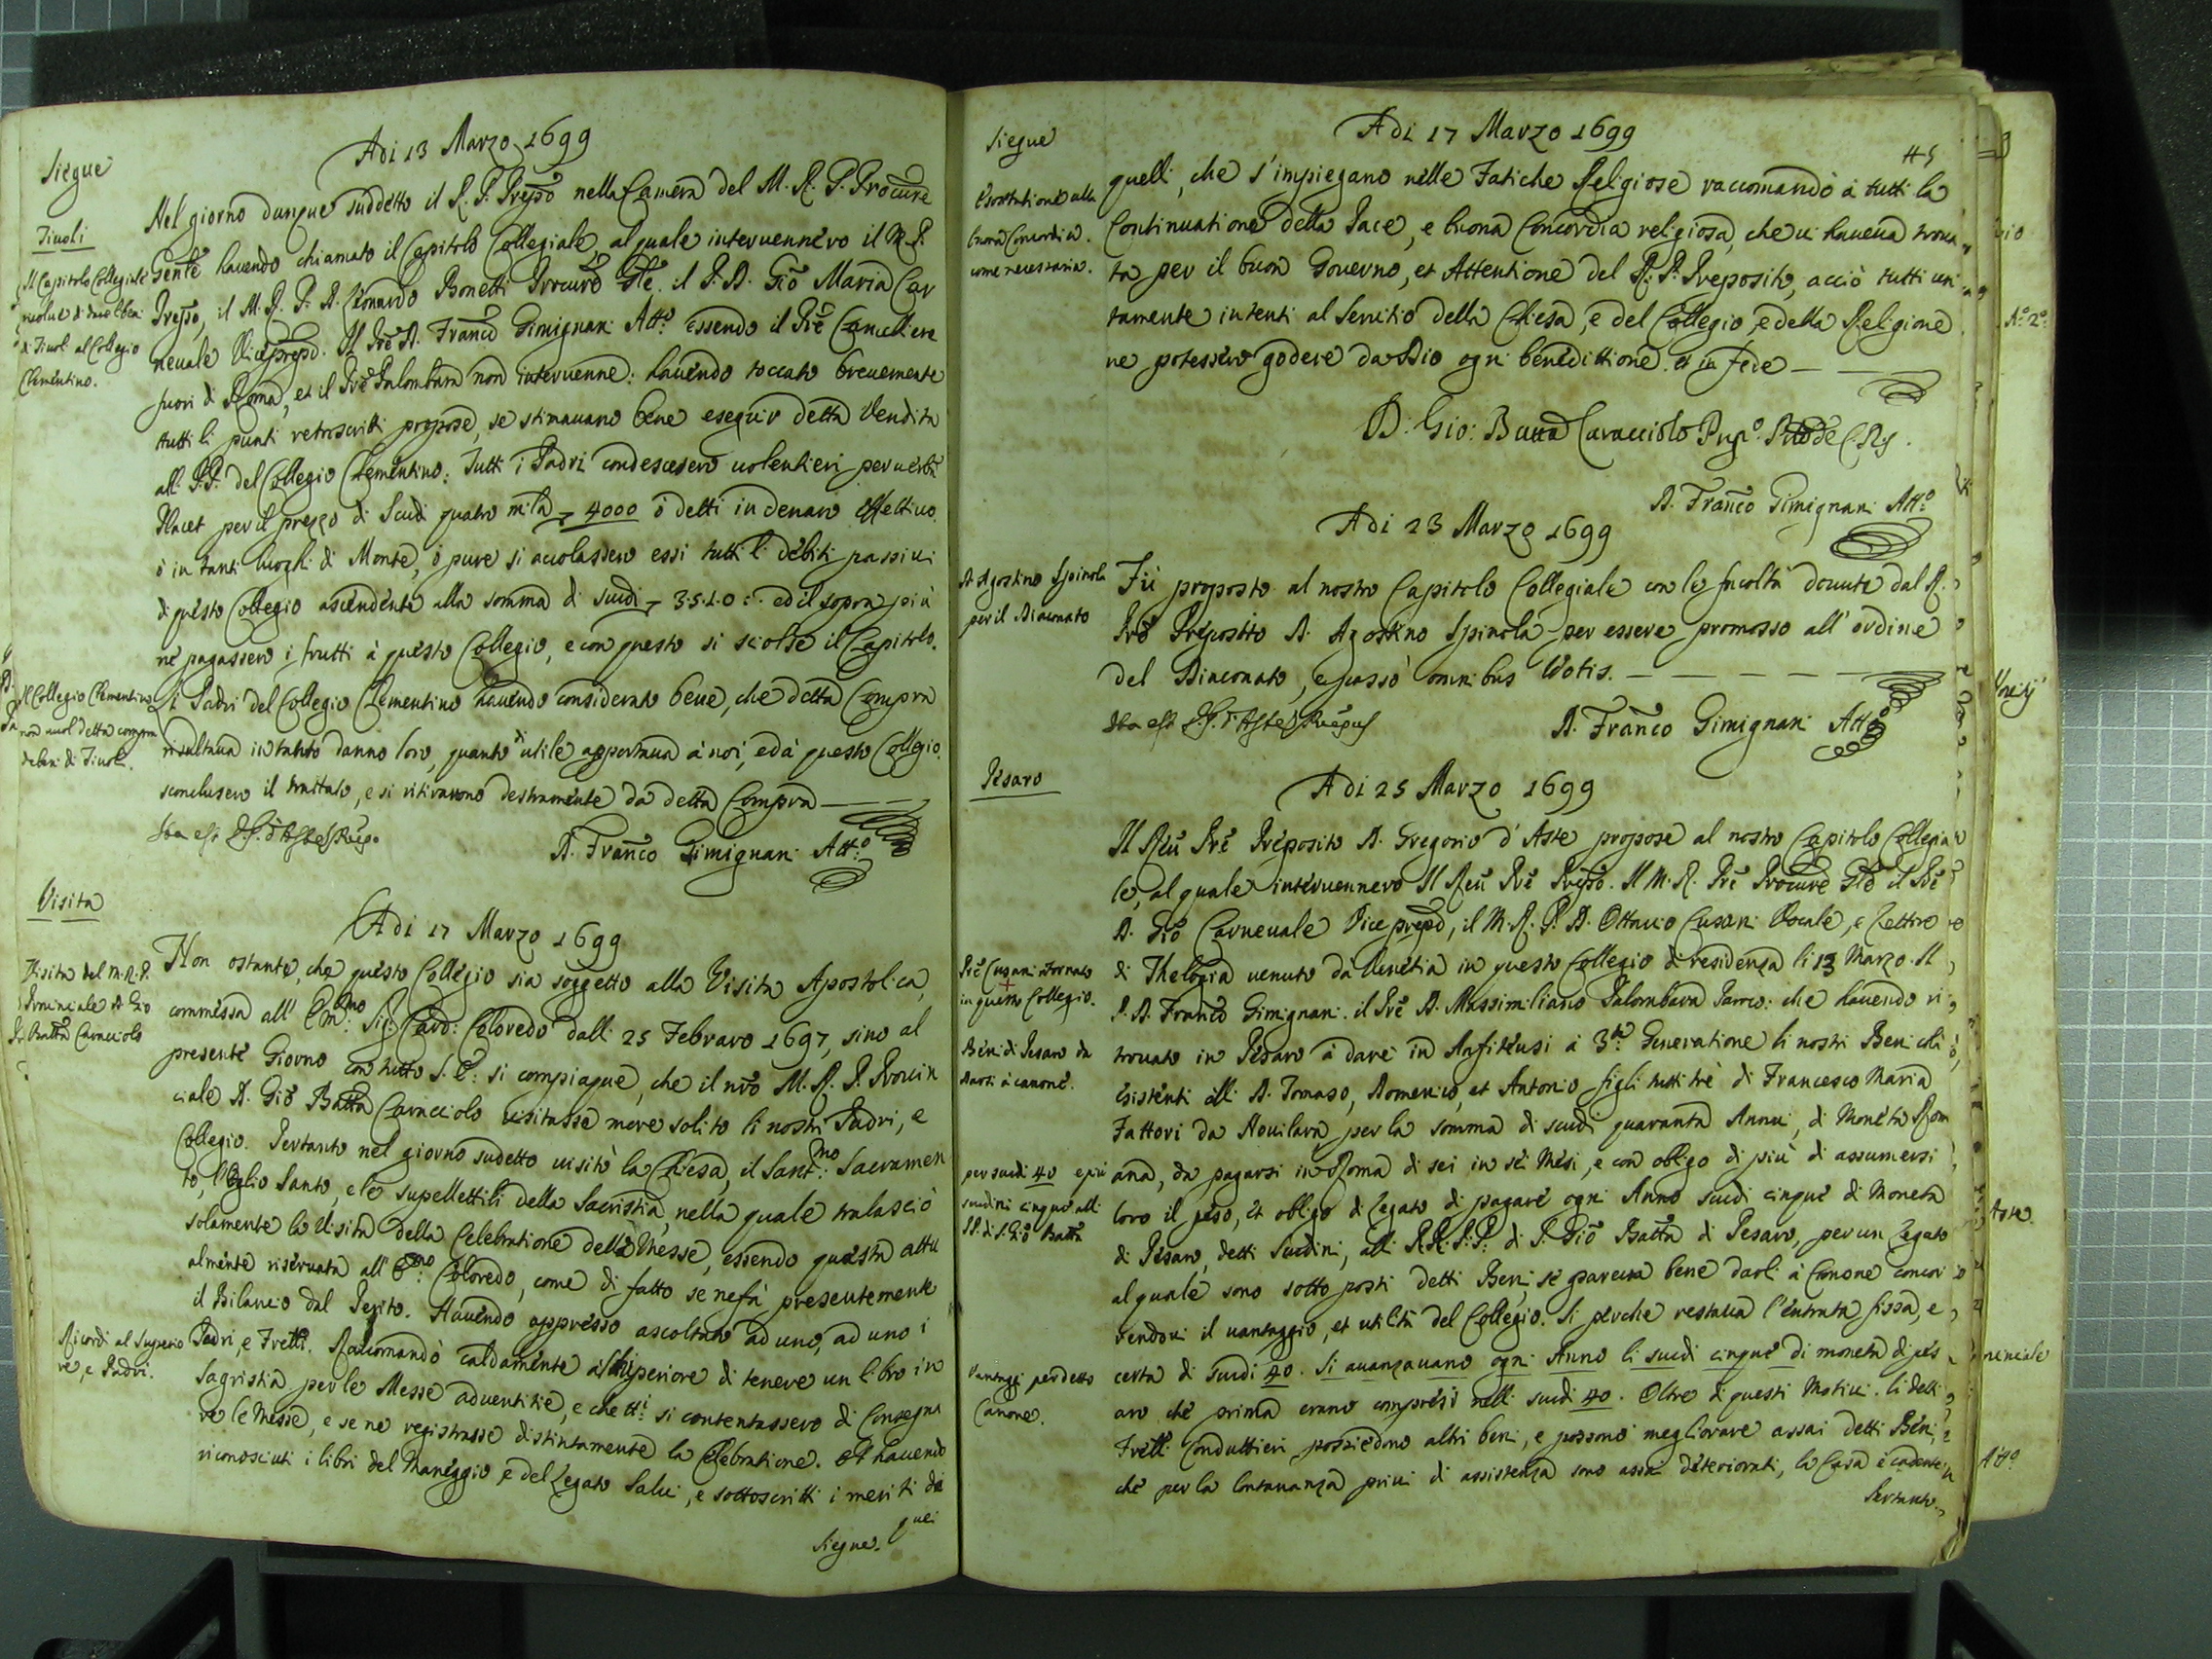 Siegue
Adi 13 Marzo 1699
Tivoli
Il Capitolo Collegiale
risolve di
di Tivoli al Collegio
Clementino.
Nel giorno dunque suddetto il R. P. Prepso nella Camera del M. R. P. Procure
Gente havendo chiamato il Capitolo Collegiale, al quale intervennero il R. P.
Prepso, il M. R. P. D. Leonardo Bonetti Procurō Glē. il P. D. Giō Maria Car
nevale Viceprepō. Il Prē D. Franco Gimignani Atto essendo il Prē Cancelliere
fuori di Roma, et il Prē Palombara non intervenne: havendo toccato brevemente
tutti li punti retroscritti propose, se stimavano bene eseguir detta Vendita
all. P.P. del Collegio Clementino. Tutti i Padri condescesero volentieri per verbū
Placet per il prezzo di Scudi quatro mila 4000 ò detti in denaro effettivo.
ò in tanti luoghi di Monte, ò pure si accolassero essi tutti li debiti passivi
di questo Collegio ascendente alla somma di scudi 3510:. ed il sopra più
ne pagassero i frutti à questo Collegio, e con questo si sciolse il Capitolo.
Il Collegio Clementino
non vuol detta compra
de beni di Tivoli.
I Padri del Collegio Clementino havendo considerato bene, che detta Compra
risultava in tanto danno loro, quanto di utile apportava à noi, ed à questo Collegio.
sconclusero il trattato, e si ritirarono destramente da detta Compra
Ita est
D. Franco Gimignani Atto
Visita
Adi 17 Marzo 1699
Visita del M. R. P.
Provinciale D. Gio
Batta Caracciolo
Non ostante, che questo Collegio sia soggetto alla Visita Apostolica,
commessa all' Emmo: Sig: Card: Coloredo dalli 25 Febraro 1697, sino al
presente Giorno con tutto S. E: si compiaque, che il nrō M. R. P. Provin
ciale D. Giō Batta Caracciolo visitasse more solito li nostri Padri, e
Collegio. Pertanto nel giorno sudetto visitò la Chiesa, il Santmo: Sacramen
to, l'Oglio Santo, e le supellettili della Sacristia, nella quale tralasciò
solamente la Visita della Celebratione delle Messe, essendo questa attu
almente riservata all' Emo: Coloredo, come di fatto se ne fà presentemente
il Bilancio dal Perito. Havendo appresso ascoltato ad uno, ad uno i
Ricordi al Superio
re, e Padri.
Padri, e Frelli. Racomandò caldamente al Superiore di tenere un libro in
sagristia per le Messe adventitie, e che tti: si contentassero di Consegna
re le Messe, e se ne registrasse distintamente la Celebratione. Et havendo
riconosciuti i libri del Maneggio, e del Legato Salvi, e sottoscritti i meriti di
quei
Siegue.
Siegue
Adi 17 Marzo 1699
45
Esortatione alla
buona Concordia.
come necessaria.
quelli, che s'impiegano nelle Fatiche Religiose raccomandò à tutti la
Continuatione della Pace, e buona Concordia religiosa, che vi haveva trova
ta per il buon Governo, et Attentione del R. P. Preposito, acciò tutti uni
tamente intenti al Servitio della Chiesa, e del Collegio, e della Religione
ne potessero godere da Dio ogni benedittione. et in fede
D: Gio: Batta Caracciolo
D. Franco Gimignani Atto
Adi 23 Marzo 1699
D Agostino Spinola
per il Diaconato
Fù proposto al nostro Capitolo Collegiale con le facoltà dovute dal R.
Prē Preposito D. Agostino Spinola per essere promosso all' ordine
del Diaconato, e passò omnibus Votis.
Ita est
D. Franco Gimignani Atto
Pesaro
Adi 25 Marzo 1699
Il Reū Prē Preposito D. Gregorio d' Aste propose al nostro Capitolo Collegia
le, al quale intervennero Il Reū Prē Prepso. Il M. R. Prē Procurē Glē il Prē
D. Giō Carnevale Viceprepō, il M. R. P. D. Ottavio Cusani Vocale, e Lettore
Prē Cusani tornato
in questo Collegio.
di Thelogia venuto da Venetia in questo Collegio di residenza li 13 Marzo. Il
P. D. Franco Gimignani. il Prē D. Massimiliano Palombara Parroco: che havendo ri
Beni di Pesaro da
darsi à canone.
trovato in Pesaro à dare in Anfiteusi à 3za Generatione li nostri Beni colì
esistenti alli D. Tomaso, Domenico, et Antonio figli tutti trè di Francesco Maria
Fattori da Novilara, per la somma di scudi quaranta Annui, di Moneta Rom
per scudi 40 e più
scudini cinque alli
PP. di S. Giō Batta
ana, da pagarsi in Roma di sei in sei Mesi, e con obligo di più di assumersi
loro il peso, et obligo di Legato di pagare ogni Anno scudi cinque di Moneta
di Pesaro, detti Scudini, alli RR. PP. di S. Giō Batta di Pesaro, per un Legato
al quale sono sotto posti detti Beni, se pareva bene darli à Canone concor
rendovi il vantaggio, et utiltà del Collegio. Sì perche restava l'entrata fissa, e
Vantaggi per detto
Canone.
certa di scudi 40. Si avanzavano ogni Anno li scudi cinque di moneta di pes
aro che prima erano compresi nelli scudi 40. Oltre di questi Motivi. li detti
Frelli Conduttieri possiedono altri beni, e possono megliorare assai detti Beni,
che per la lontananza privi di assistenza sono assai deteriorati, la Casa è cadente,
Pertanto.